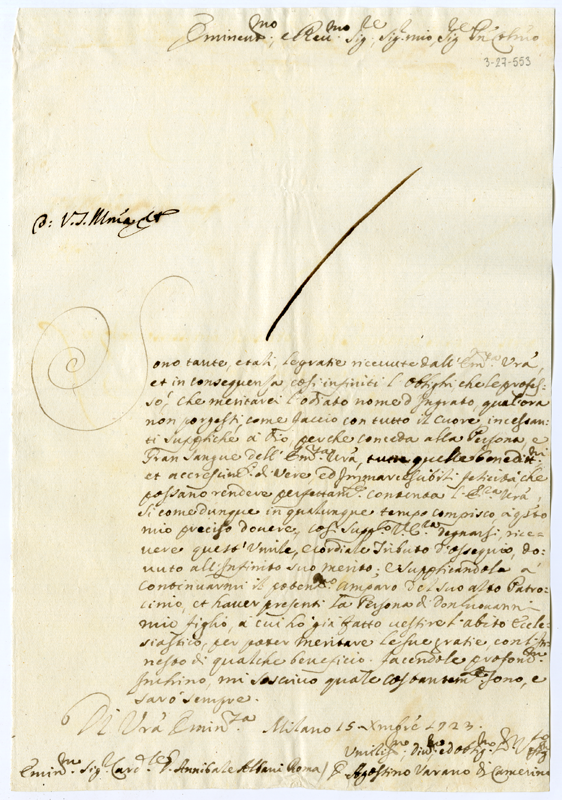 Eminent.mo, e Reu.mo Sig.r, Sig.r mio, Sig.r
3-27-553
Sono tante, e tali, le gratie riceuute dall'Em.za Vr̃a,
et in conseguenza così infiniti l'obblighi che le profes-
so, che meritarei l'odiato nome d'Ingrato, qual'ora
non porgessi, come faccio con tutto il Cuore, incessan-
ti suppliche a Dio, perche conceda alla Persona, e
Gran Sangue dell'Em.za Vr̃a, tutte quelle benedit.ni
et accrescim.ti di vere, ed Immarcesibili felicità che
possano rendere perfettam.te contenta l'E.za Vr̃a,
si come dunque in qualunque tempo compisco a q̃sto
mio preciso douere, così suppl.o V. E.za degnarsi, rice-
uere quest'Vmile, e Cordiale Tributo d'ossequio, do-
uuto all'Infinito suo merito, e supplicandola a
continuarmi il poten.mo Amparo del suo alto Patro-
cinio, et hauer presenti la Persona di Don Giouanni
mio figlio, a cui hò già fatto uestire l'abito Eccle-
siastico, per poter meritare le sue gratie, con l'In-
nesto di qualche beneficio. facendole profond.mo
Inchino, mi sascriuo quale costantem.te sono, e
sarò sempre.
Di Vr̃a Emin.za Milano 15 Xmbre 1723.
Vmiliss.mo, Diu.mo ed obbligat.mo
Emin.mo Sig.r Card.le D. Annibale Albani Roma) Agostino Varano di Camerino